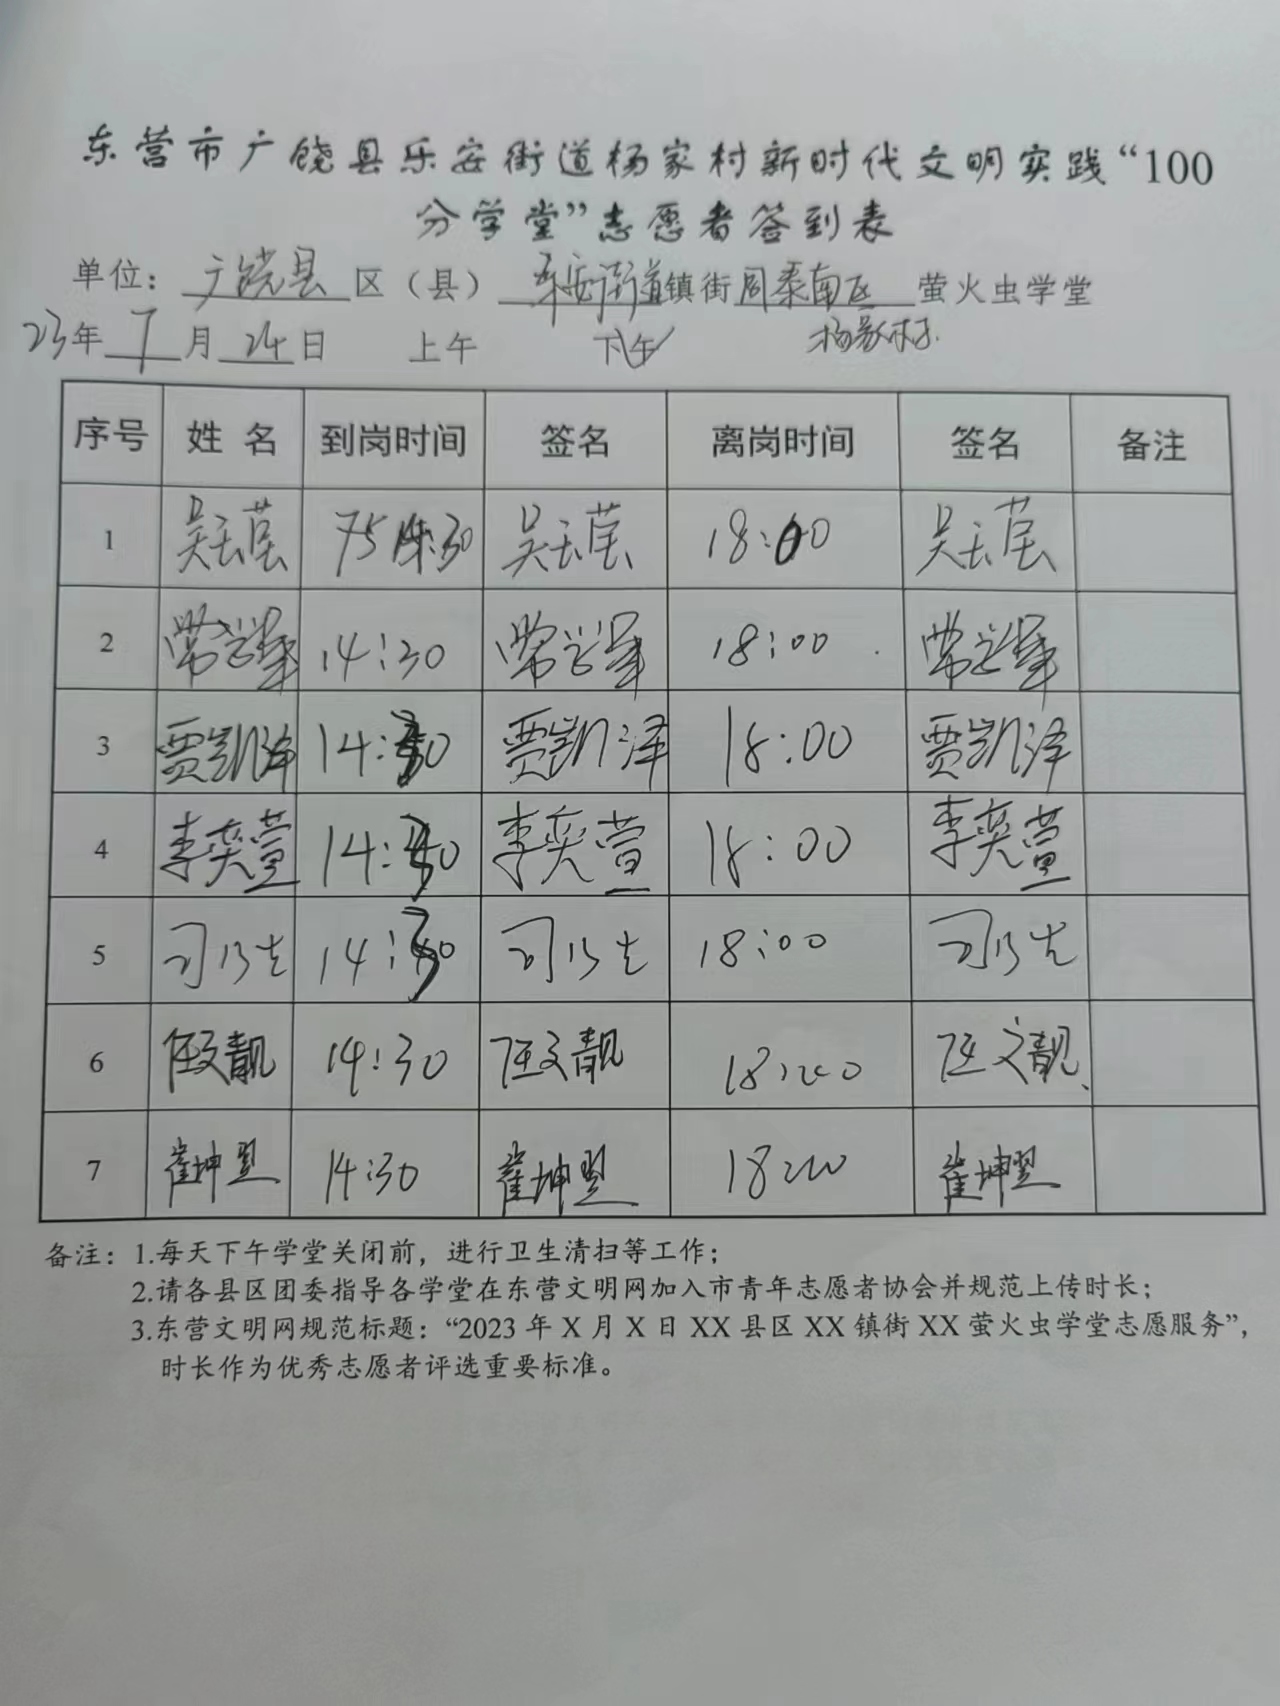 东营市广饶县乐安街道杨家村新时代文明实践“100
分学堂”志愿者签到表
单位：广饶县区（县）乐安街道镇街同泰南区萤火虫学堂
杨家村
23年7月24日 上午 下午
序号 姓名 到岗时间 签名 离岗时间 签名 备注
1 14:30 18:00
2 14:30 18:00
3 贾凯泽 14:30 贾凯泽 18:00 贾凯泽
4 李奕萱 14:30 李奕萱 18:00 李奕萱
5 司乃生 14:30 司乃生 18:00 司乃生
6 任文靓 14:30 任文靓 18:00 任文靓
7 崔坤翌 14:30 崔坤翌 18:00 崔坤翌
备注：1.每天下午学堂关闭前，进行卫生清扫等工作；
2.请各县区团委指导各学堂在东营文明网加入市青年志愿者协会并规范上传时长；
3.东营文明网规范标题：“2023 年 X 月 X 日 XX 县区 XX 镇街 XX 萤火虫学堂志愿服务”，
时长作为优秀志愿者评选重要标准。